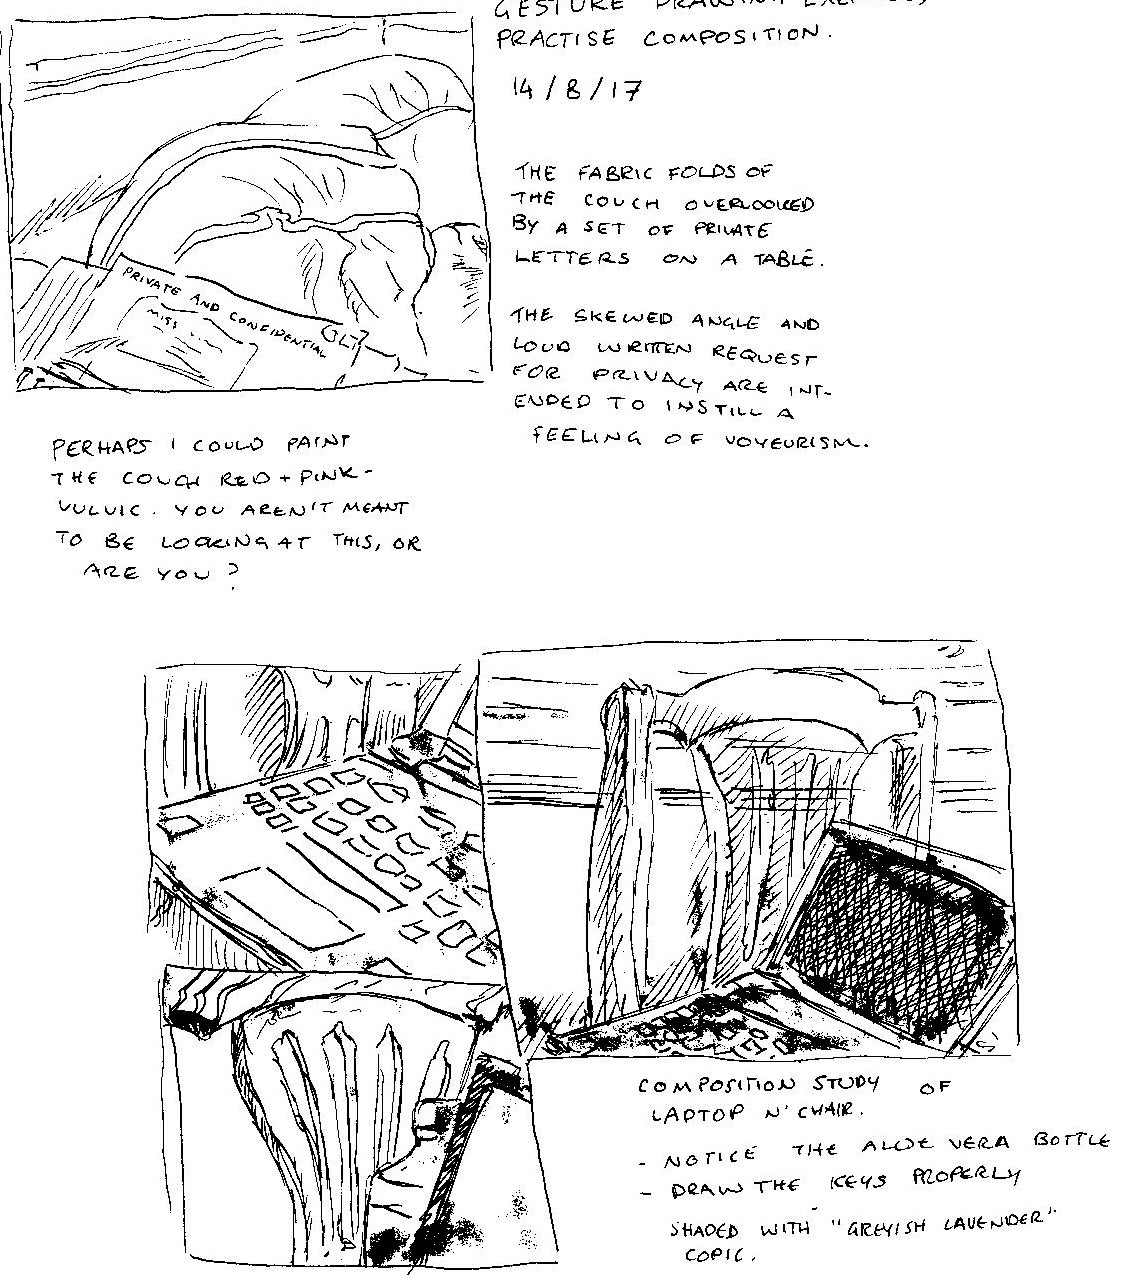 GESTURE DRAWING
PRACTISE COMPOSITION.
14/8/17
THE FABRIC FOLDS OF
THE COUCH OVERLOOKED
BY A SET OF PRIVATE
LETTERS ON A TABLE.
THE SKEWED ANGLE AND
LOUD WRITTEN REQUEST
FOR PRIVACY ARE INT-
ENDED TO INSTILL A
FEELING OF VOYEURISM.
PRIVATE AND CONFIDENTIAL
MISS
PERHAPS I COULD PAINT
THE COUCH RED + PINK -
VULVIC. YOU AREN'T MEANT
TO BE LOOKING AT THIS, OR
ARE YOU?
COMPOSITION STUDY OF
LAPTOP N' CHAIR.
- NOTICE THE ALOE VERA BOTTLE
- DRAW THE KEYS PROPERLY
SHADED WITH "GREYISH LAVENDER"
COPIC.